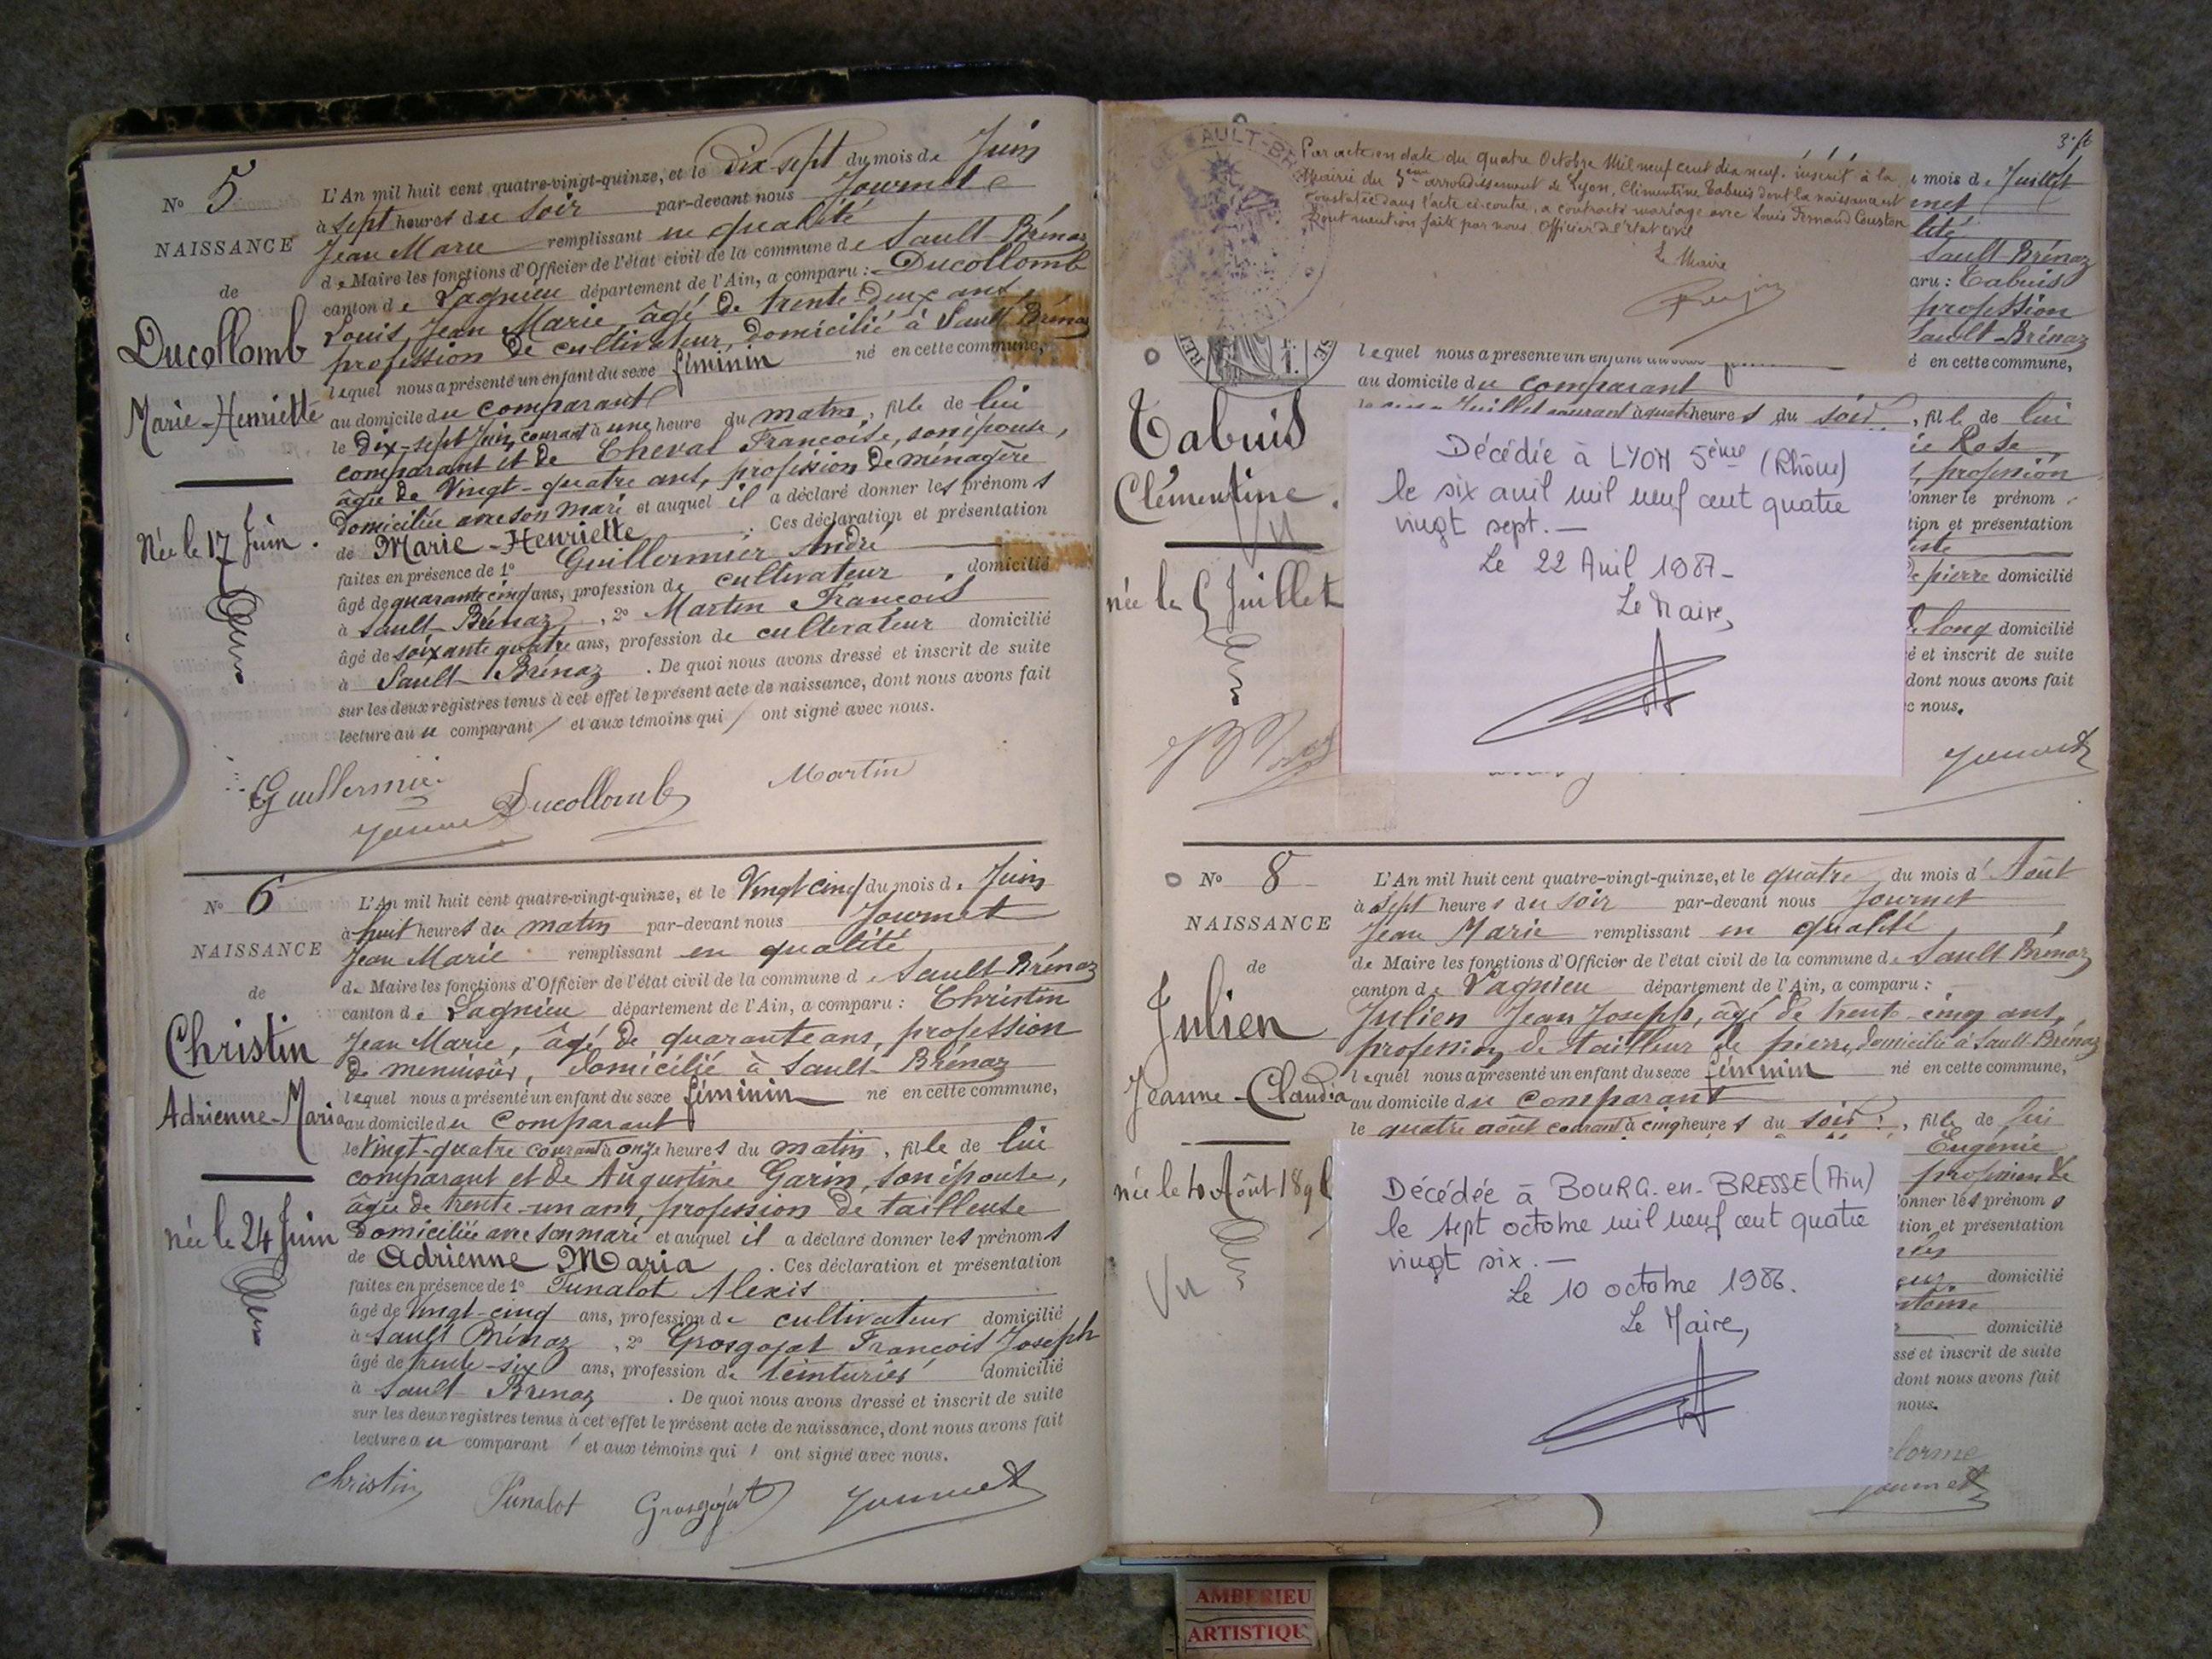 N° 5
NAISSANCE
de
Ducollomb
Marie-Henriette
Née le 17 Juin.
L'An mil huit cent quatre-vingt-quinze, et le Dix-sept du mois de Juin
à Sept heures du Soir par-devant nous Journet
Jean Marie remplissant en qualité
de Maire les fonctions d'Officier de l'état civil de la commune de Sault-Brénaz
canton de Lagnieu département de l'Ain, a comparu : Ducollomb
Louis, Jean Marie âgé de trente-deux ans,
profession de cultivateur, domicilié à Sault Brénaz
lequel nous a présenté un enfant du sexe féminin né en cette commune,
au domicile du comparant
le Dix-sept Juin courant à une heure du matin, fille de lui
comparant et de Cheval Françoise, son épouse,
âgée de Vingt-quatre ans, profession de ménagère
domiciliée avec son mari et auquel il a déclaré donner les prénoms
de Marie-Henriette. Ces déclaration et présentation
faites en présence de 1° Guillermier André
âgé de quarante cinq ans, profession de cultivateur, domicilié
à Sault-Brénaz, 2° Martin François
âgé de soixante quatre ans, profession de cultivateur domicilié
à Sault-Brénaz. De quoi nous avons dressé et inscrit de suite
sur les deux registres tenus à cet effet le présent acte de naissance, dont nous avons fait
lecture au comparant et aux témoins qui ont signé avec nous.
Guillermier
Ducollomb
Martin
N° 6
NAISSANCE
de
Christin
Adrienne-Maria
née le 24 Juin
L'An mil huit cent quatre-vingt-quinze, et le Vingt cinq du mois de Juin
à huit heures du matin par-devant nous Journet
Jean Marie remplissant en qualité
de Maire les fonctions d'Officier de l'état civil de la commune de Sault-Brénaz
canton de Lagnieu département de l'Ain, a comparu : Christin
Jean Marie, âgé de quarante ans, profession
de menuisier, domicilié à Sault-Brénaz
lequel nous a présenté un enfant du sexe féminin né en cette commune,
au domicile du Comparant
le Vingt-quatre courant à onze heures du matin, fille de lui
comparant et de Augustine Garin, son épouse,
âgée de trente-un ans, profession de tailleuse
Domiciliée avec son mari et auquel il a déclaré donner les prénoms
de Adrienne Maria. Ces déclaration et présentation
faites en présence de 1° Punalot Alexis
âgé de Vingt-cinq ans, profession de cultivateur domicilié
à Sault Brénaz, 2° Grosgojat François Joseph
âgé de trente-six ans, profession de teinturier domicilié
à Sault Brénaz. De quoi nous avons dressé et inscrit de suite
sur les deux registres tenus à cet effet le présent acte de naissance, dont nous avons fait
lecture au comparant et aux témoins qui ont signé avec nous.
Christin
Punalot
Grosgojat
Journet
Par acte en date du quatre Octobre Mil neuf cent dix neuf, inscrit à la
Mairie du 5ème arrondissement de Lyon, Clémentine Tabuis dont la naissance est
constatée dans l'acte ci-contre, a contracté mariage avec Louis Fernand Couston
Dont mention faite par nous Officier de l'Etat civil
Le Maire
mois de Juillet
Sault Brénaz
aru : Tabuis
profession
Sault-Brénaz
lequel nous a présenté un enfant
é en cette commune,
au domicile du comparant
Juillet courant à heures du soir, fille de lui
Rose
profession
onner le prénom
tion et présentation
de pierre domicilié
long domicilié
é et inscrit de suite
dont nous avons fait
c nous.
Journet
Tabuis
Clémentine.
Vu
née le 5 Juillet
Décédée à LYON 5ème (Rhône)
le six avril mil neuf cent quatre
vingt sept. —
Le 22 Avril 1987 —
Le Maire,
N° 8
NAISSANCE
de
Julien
Jeanne-Claudia
née le 4 Août 189
Vu
L'An mil huit cent quatre-vingt-quinze, et le quatre du mois d'Août
à Sept heures du soir par-devant nous Journet
Jean Marie remplissant en qualité
de Maire les fonctions d'Officier de l'état civil de la commune de Sault Brénaz
canton de Lagnieu département de l'Ain, a comparu :
Julien Jean Joseph, âgé de trente-cinq ans,
profession de tailleur de pierre, domicilié à Sault-Brénaz
lequel nous a présenté un enfant du sexe féminin né en cette commune,
au domicile du Comparant
le quatre août courant à cinq heures du soir, fille de lui
Eugénie
profession de
onner les prénoms
tion et présentation
domicilié
domicilié
ssé et inscrit de suite
dont nous avons fait
nous.
Journet
Décédée à BOURG-en-BRESSE (Ain)
le sept octobre mil neuf cent quatre
vingt six. —
Le 10 octobre 1986.
Le Maire,
AMBERIEU
ARTISTIQU